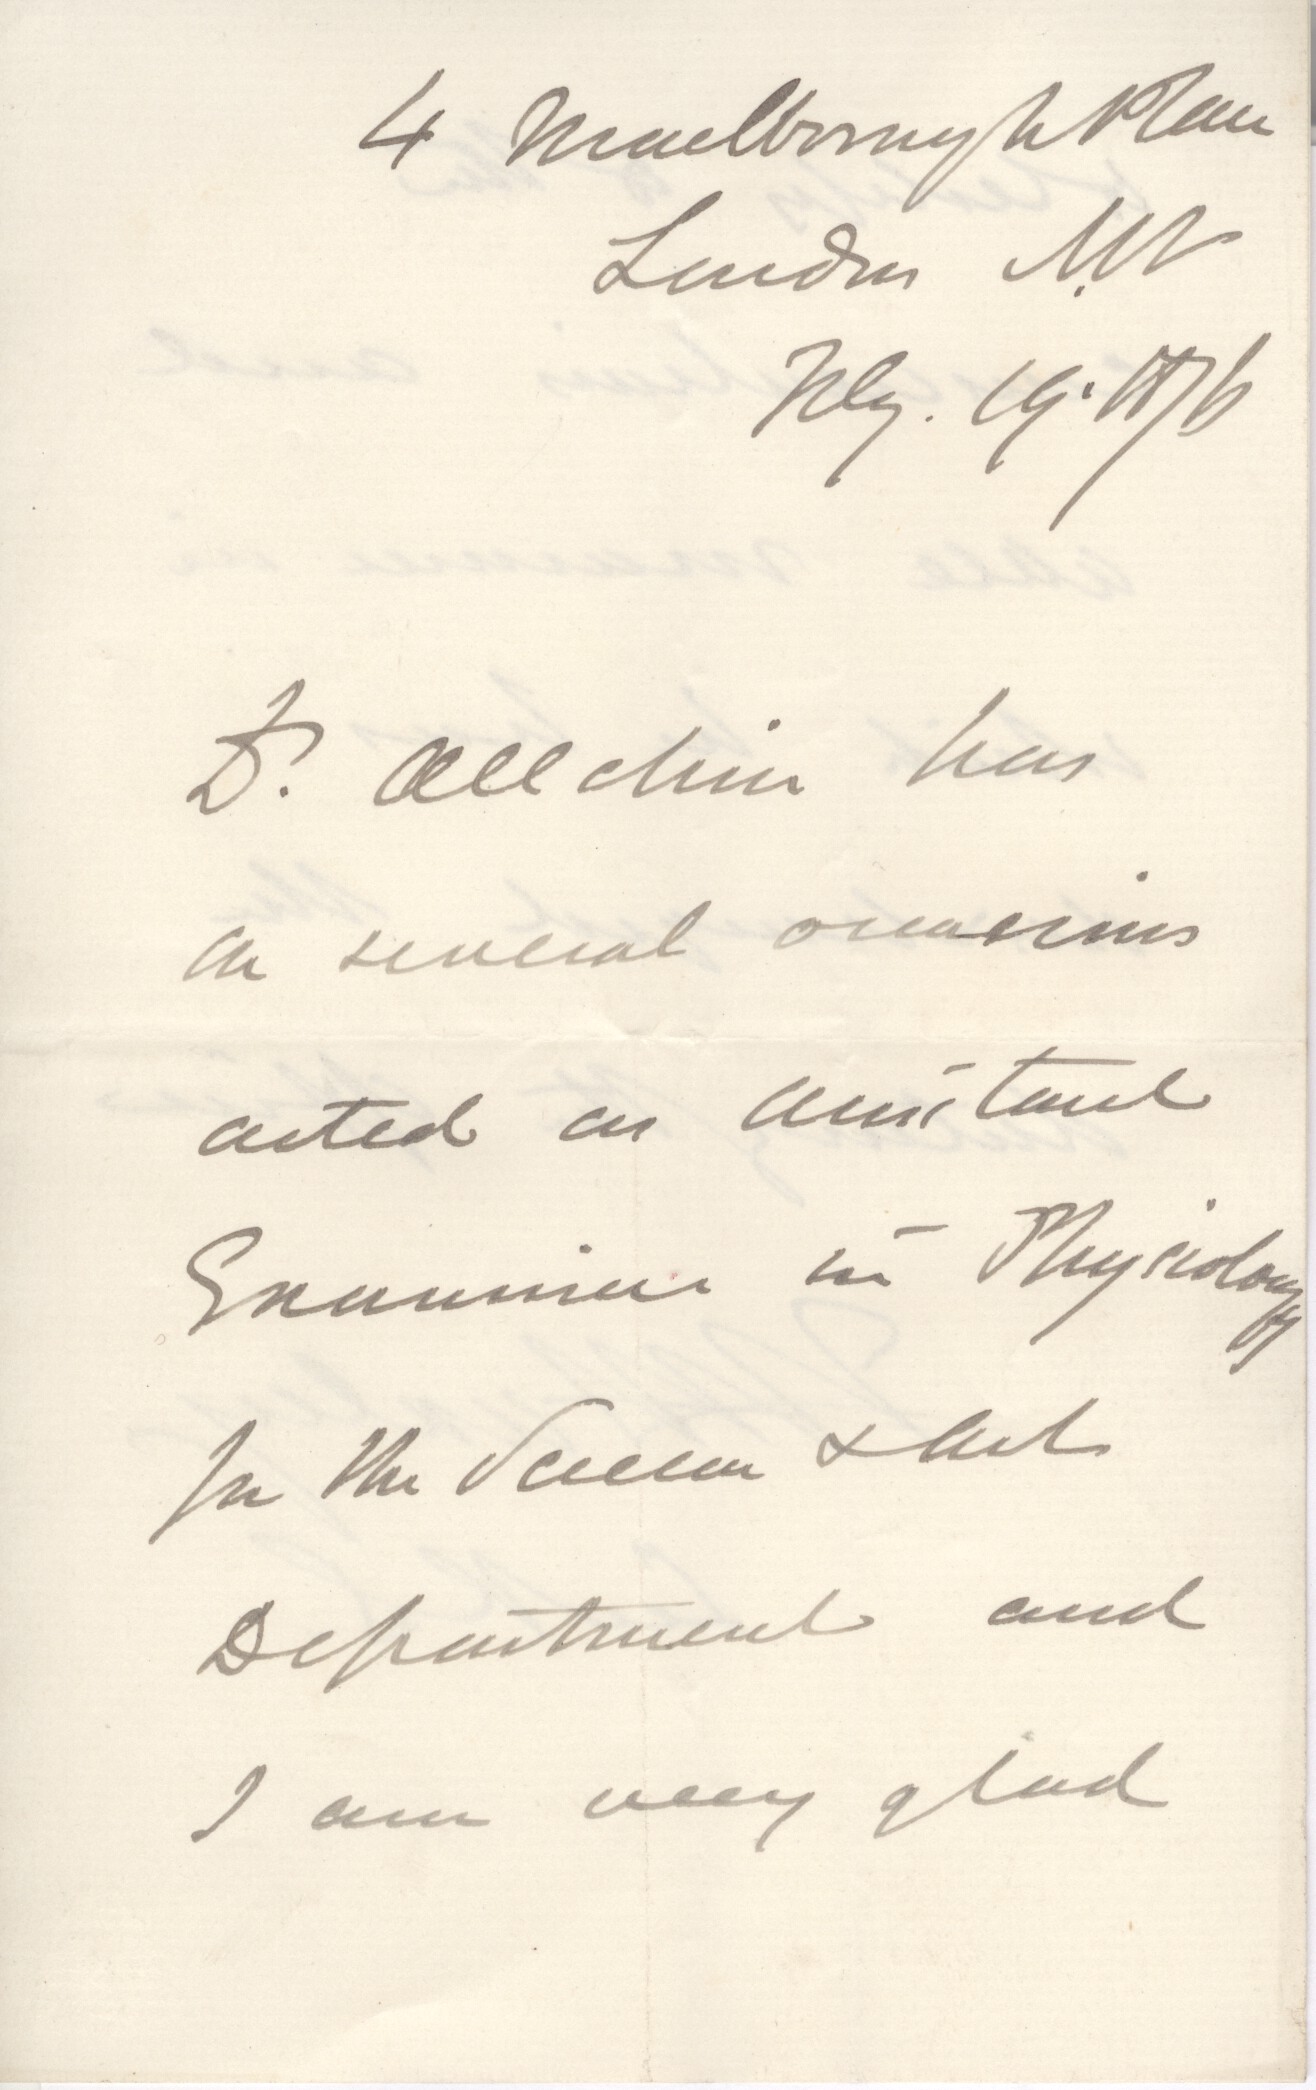 4 Marlborough Place
London N.W
July. 19. 1876
Dr. Allchin has
on several occasions
acted as assistant
Examiner in Physiology
for the Science & Art
Department and
I am very glad